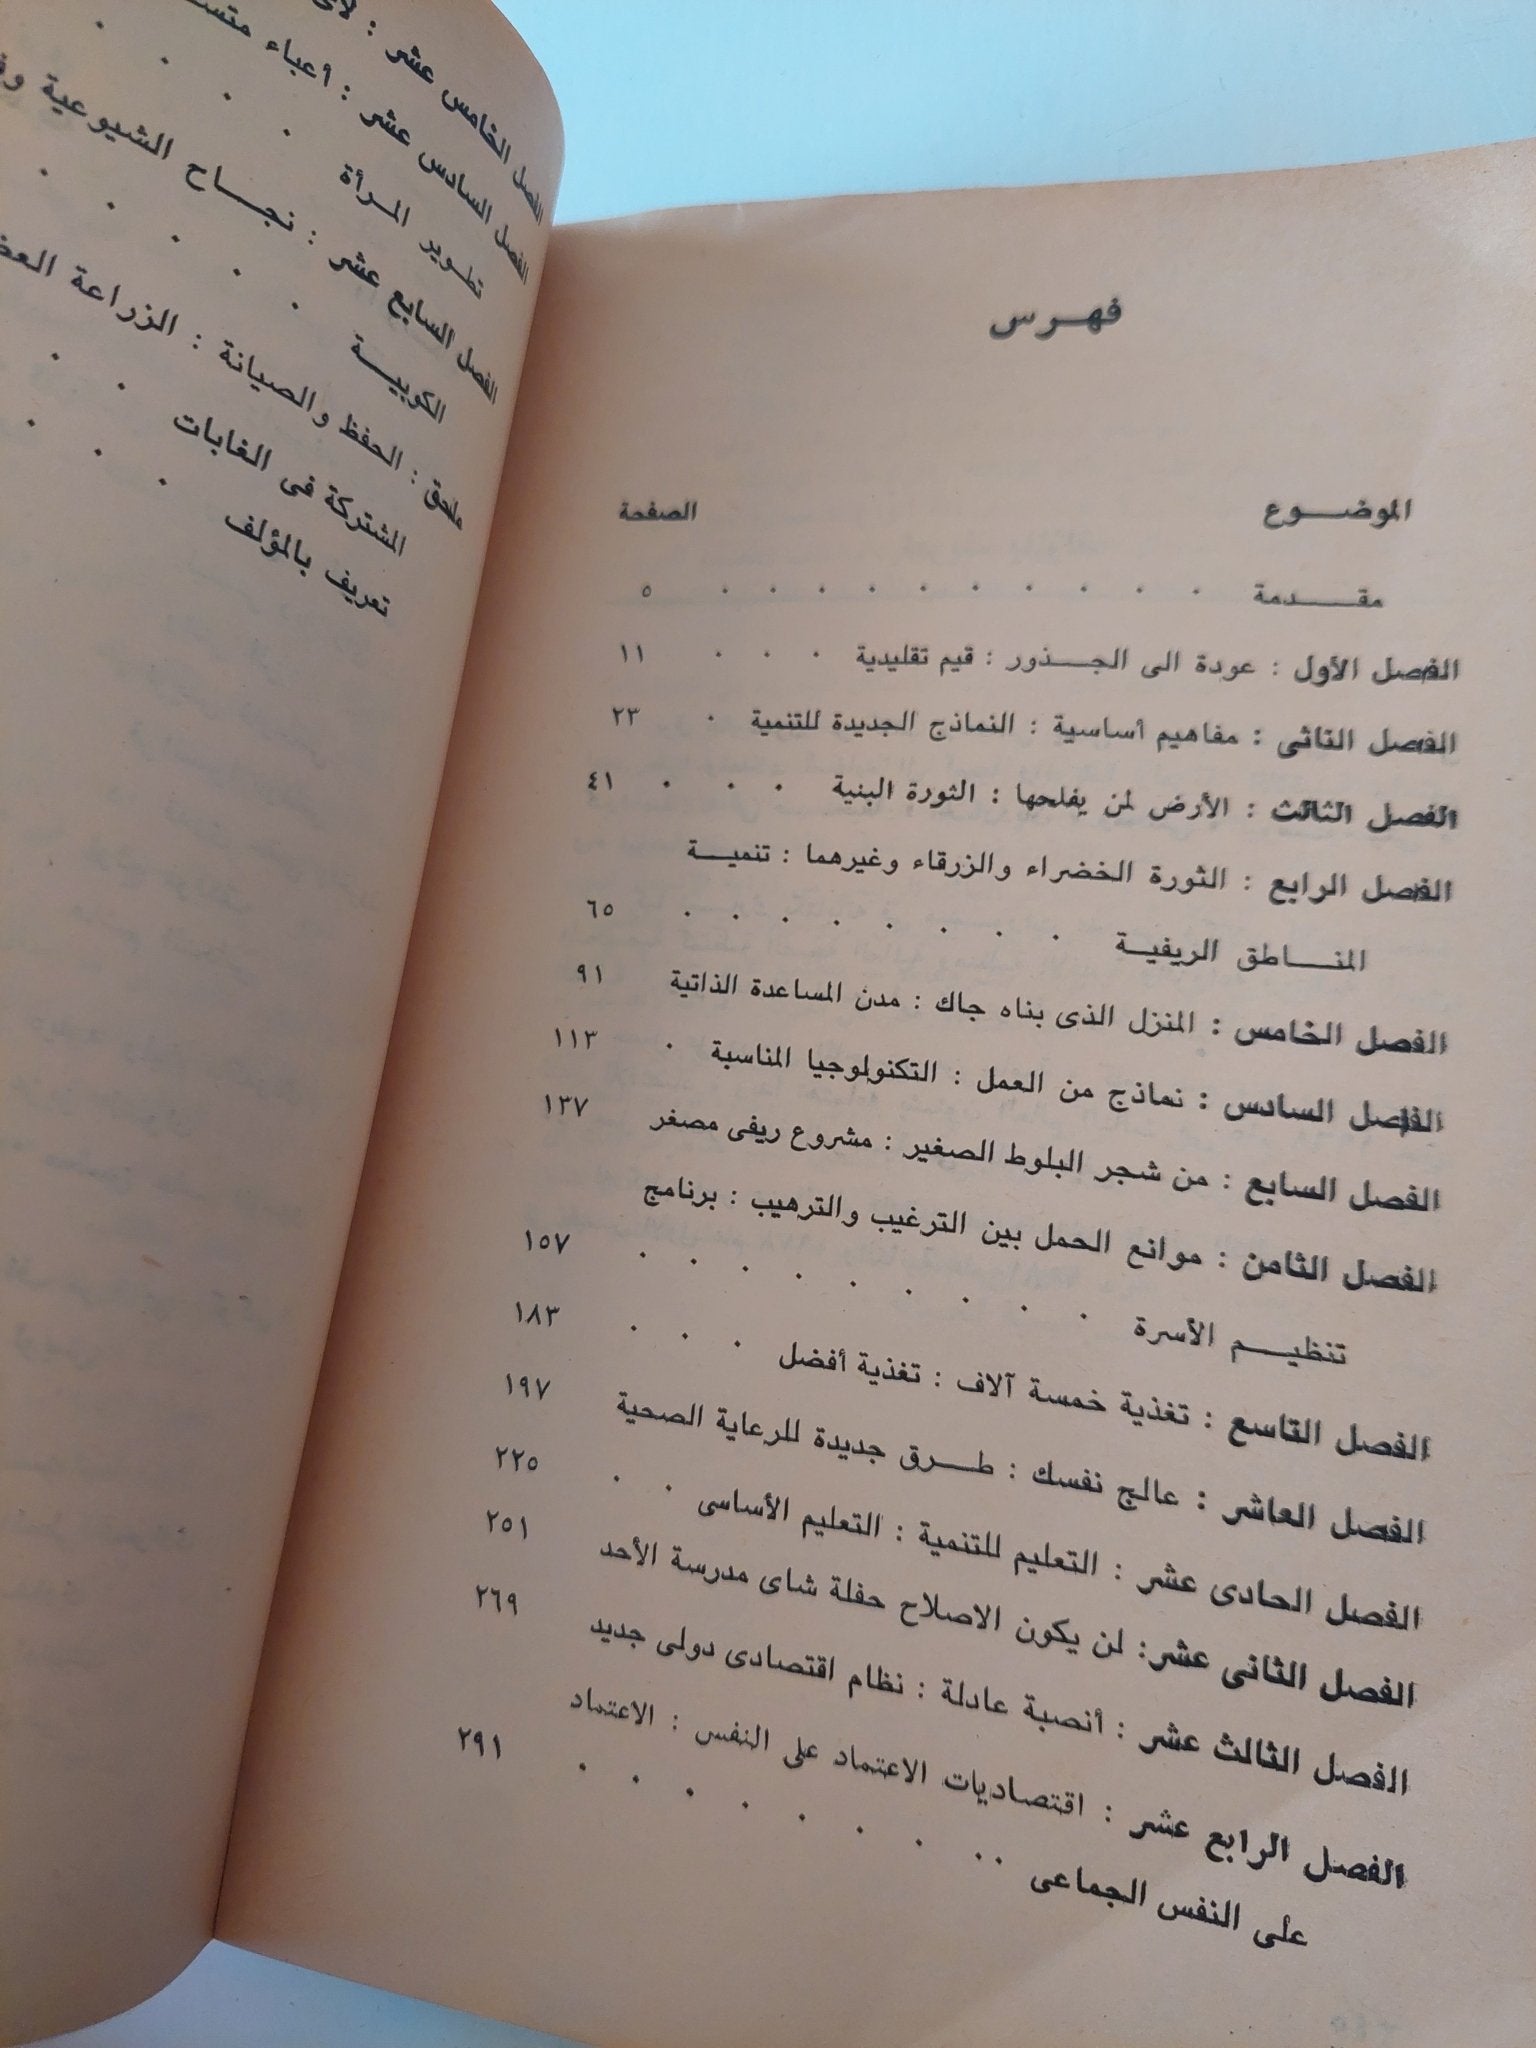 فهرس
الموضوع الصفحة
مقدمة . . . . . . . . . . ٥
الفصل الأول : عودة الى الجذور : قيم تقليدية . . . ١١
الفصل الثانى : مفاهيم أساسية : النماذج الجديدة للتنمية . ٢٣
الفصل الثالث : الأرض لمن يفلحها : الثورة البنية . . . ٤١
الفصل الرابع : الثورة الخضراء والزرقاء وغيرهما : تنمية
المناطق الريفية . . . . . . . . ٦٥
الفصل الخامس : المنزل الذى بناه جاك : مدن المساعدة الذاتية ٩١
الفصل السادس : نماذج من العمل : التكنولوجيا المناسبة . ١١٣
الفصل السابع : من شجر البلوط الصغير : مشروع ريفى مصغر ١٣٧
الفصل الثامن : موانع الحمل بين الترغيب والترهيب : برنامج
تنظيم الأسرة . . . . . . . . . ١٥٧
الفصل التاسع : تغذية خمسة آلاف : تغذية أفضل . . . ١٨٣
الفصل العاشر : عالج نفسك : طرق جديدة للرعاية الصحية ١٩٧
الفصل الحادى عشر : التعليم للتنمية : التعليم الأساسى . . ٢٢٥
الفصل الثانى عشر: لن يكون الاصلاح حفلة شاى مدرسة الأحد ٢٥١
الفصل الثالث عشر : أنصبة عادلة : نظام اقتصادى دولى جديد ٢٦٩
الفصل الرابع عشر : اقتصاديات الاعتماد على النفس : الاعتماد
على النفس الجماعى . . . . . . . . . ٢٩١
الفصل الخامس عشر :
الفصل السادس عشر : أعباء
تطوير المرأة . . . .
الفصل السابع عشر : نجاح الشيوعية
الكوبية . . . . .
ملحق : الحفظ والصيانة : الزراعة
المشتركة فى الغابات . .
تعريف بالمؤلف . . .